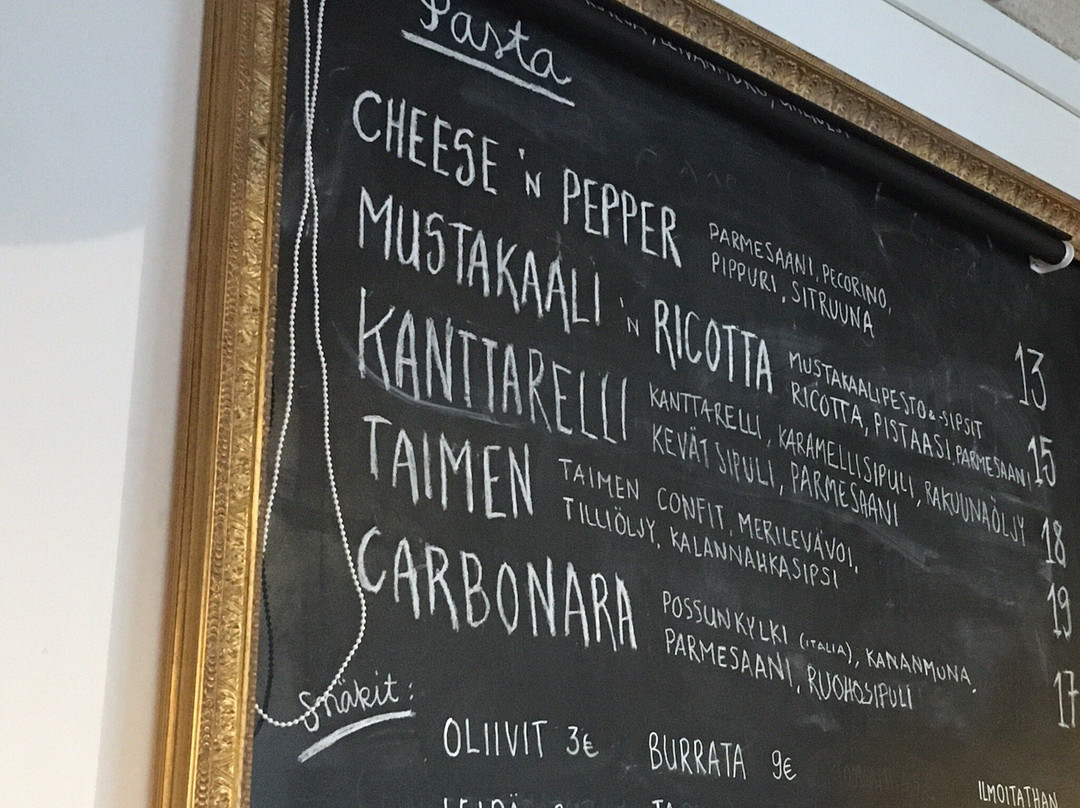 Pasta
CHEESE 'N PEPPER PARMESAANI, PECORINO,
PIPPURI, SITRUUNA 13
MUSTAKAALI 'N RICOTTA MUSTAKAALIPESTO & -SIPSIT
RICOTTA, PISTAASI, PARMESAANI 15
KANTTARELLI KANTTARELLI, KARAMELLISIPULI, RAKUUNAÖLJY
KEVÄTSIPULI, PARMESAANI 18
TAIMEN TAIMEN CONFIT, MERILEVÄVOI,
TILLIÖLJY, KALANNAHKASIPSI 19
CARBONARA POSSUNKYLKI (ITALIA), KANANMUNA,
PARMESAANI, RUOHOSIPULI 17
Snäkit:
OLIIVIT 3€ BURRATA 9€
ILMOITATHAN